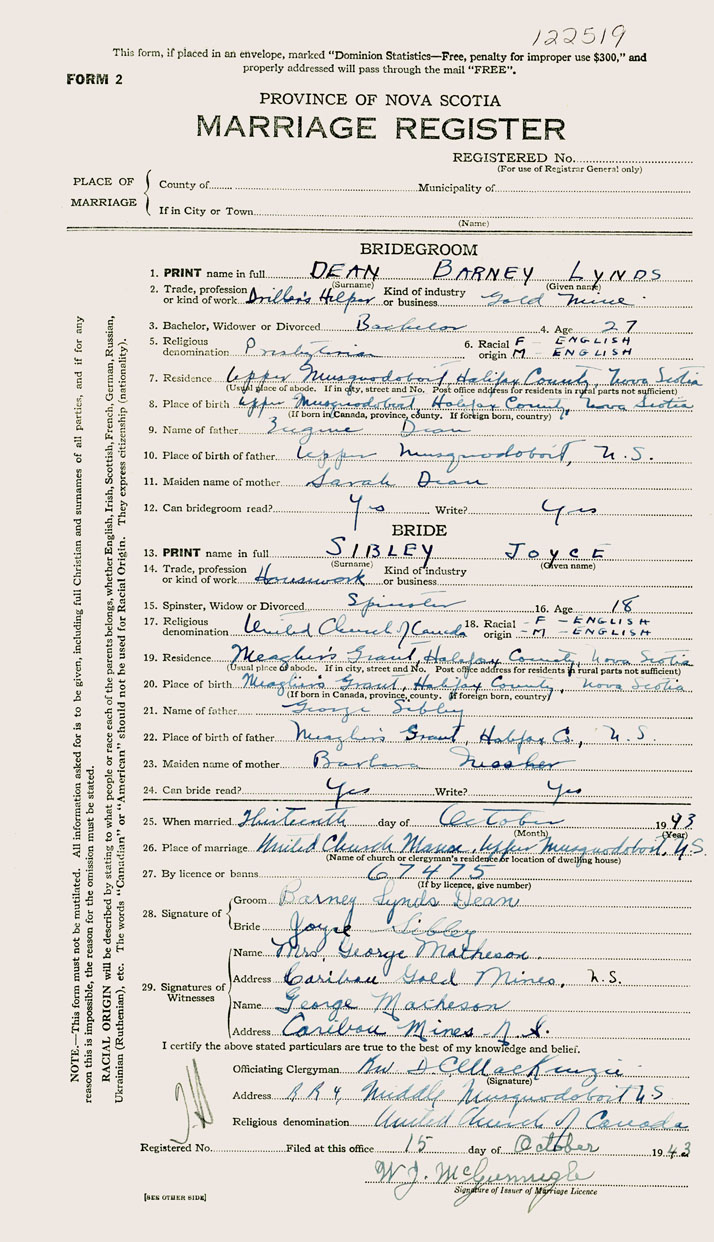 122519
This form, if placed in an envelope, marked "Dominion Statistics—Free, penalty for improper use $300," and
properly addressed will pass through the mail "FREE".
FORM 2
PROVINCE OF NOVA SCOTIA
MARRIAGE REGISTER
REGISTERED No.
(For use of Registrar General only)
PLACE OF MARRIAGE
County of Municipality of
If in City or Town
(Name)
BRIDEGROOM
1. PRINT name in full DEAN BARNEY LYNDS
(Surname) (Given name)
2. Trade, profession or kind of work Driller's Helper Kind of industry or business Gold Mine
3. Bachelor, Widower or Divorced Bachelor 4. Age 27
5. Religious denomination Presbyterian 6. Racial origin F - ENGLISH M - ENGLISH
7. Residence Upper Musquodoboit, Halifax County, Nova Scotia
(Usual place of abode. If in city, street and No. Post office address for residents in rural parts not sufficient)
8. Place of birth Upper Musquodoboit, Halifax County, Nova Scotia
(If born in Canada, province, county. If foreign born, country)
9. Name of father Eugene Dean
10. Place of birth of father Upper Musquodoboit, N.S.
11. Maiden name of mother Sarah Dean
12. Can bridegroom read? Yes Write? Yes
BRIDE
13. PRINT name in full SIBLEY JOYCE
(Surname) (Given name)
14. Trade, profession or kind of work Housework Kind of industry or business
15. Spinster, Widow or Divorced Spinster 16. Age 18
17. Religious denomination United Church of Canada 18. Racial origin - F - ENGLISH - M - ENGLISH
19. Residence Meagher's Grant, Halifax County, Nova Scotia
(Usual place of abode. If in city, street and No. Post office address for residents in rural parts not sufficient)
20. Place of birth Meagher's Grant, Halifax County, Nova Scotia
(If born in Canada, province, county. If foreign born, country)
21. Name of father George Sibley
22. Place of birth of father Meagher's Grant, Halifax Co., N.S.
23. Maiden name of mother Barbara
24. Can bride read? Yes Write? Yes
25. When married Thirteenth day of October 1943
(Month) (Year)
26. Place of marriage United Church Manse, Upper Musquodoboit, N.S.
(Name of church or clergyman's residence or location of dwelling house)
27. By licence or banns 67475
(If by licence, give number)
28. Signature of
Groom Barney Lynds Dean
Bride Joyce Sibley
29. Signatures of Witnesses
Name Mrs. George Matheson.
Address Caribou Gold Mines, N.S.
Name George Matheson
Address Caribou Mines N.S.
I certify the above stated particulars are true to the best of my knowledge and belief.
Officiating Clergyman Rev. D C MacKenzie
(Signature)
Address R R 4, Middle Musquodoboit N.S
Religious denomination United Church of Canada
Registered No. Filed at this office 15 day of October 1943
W. J.
Signature of Issuer of Marriage Licence
[SEE OTHER SIDE]
NOTE.—This form must not be mutilated. All information asked for is to be given, including full Christian and surnames of all parties, and if for any
reason this is impossible, the reason for the omission must be stated.
RACIAL ORIGIN will be described by stating to what people or race each of the parents belongs, whether English, Irish, Scottish, French, German, Russian,
Ukrainian (Ruthenian), etc. The words "Canadian" or "American" should not be used for Racial Origin. They express citizenship (nationality).